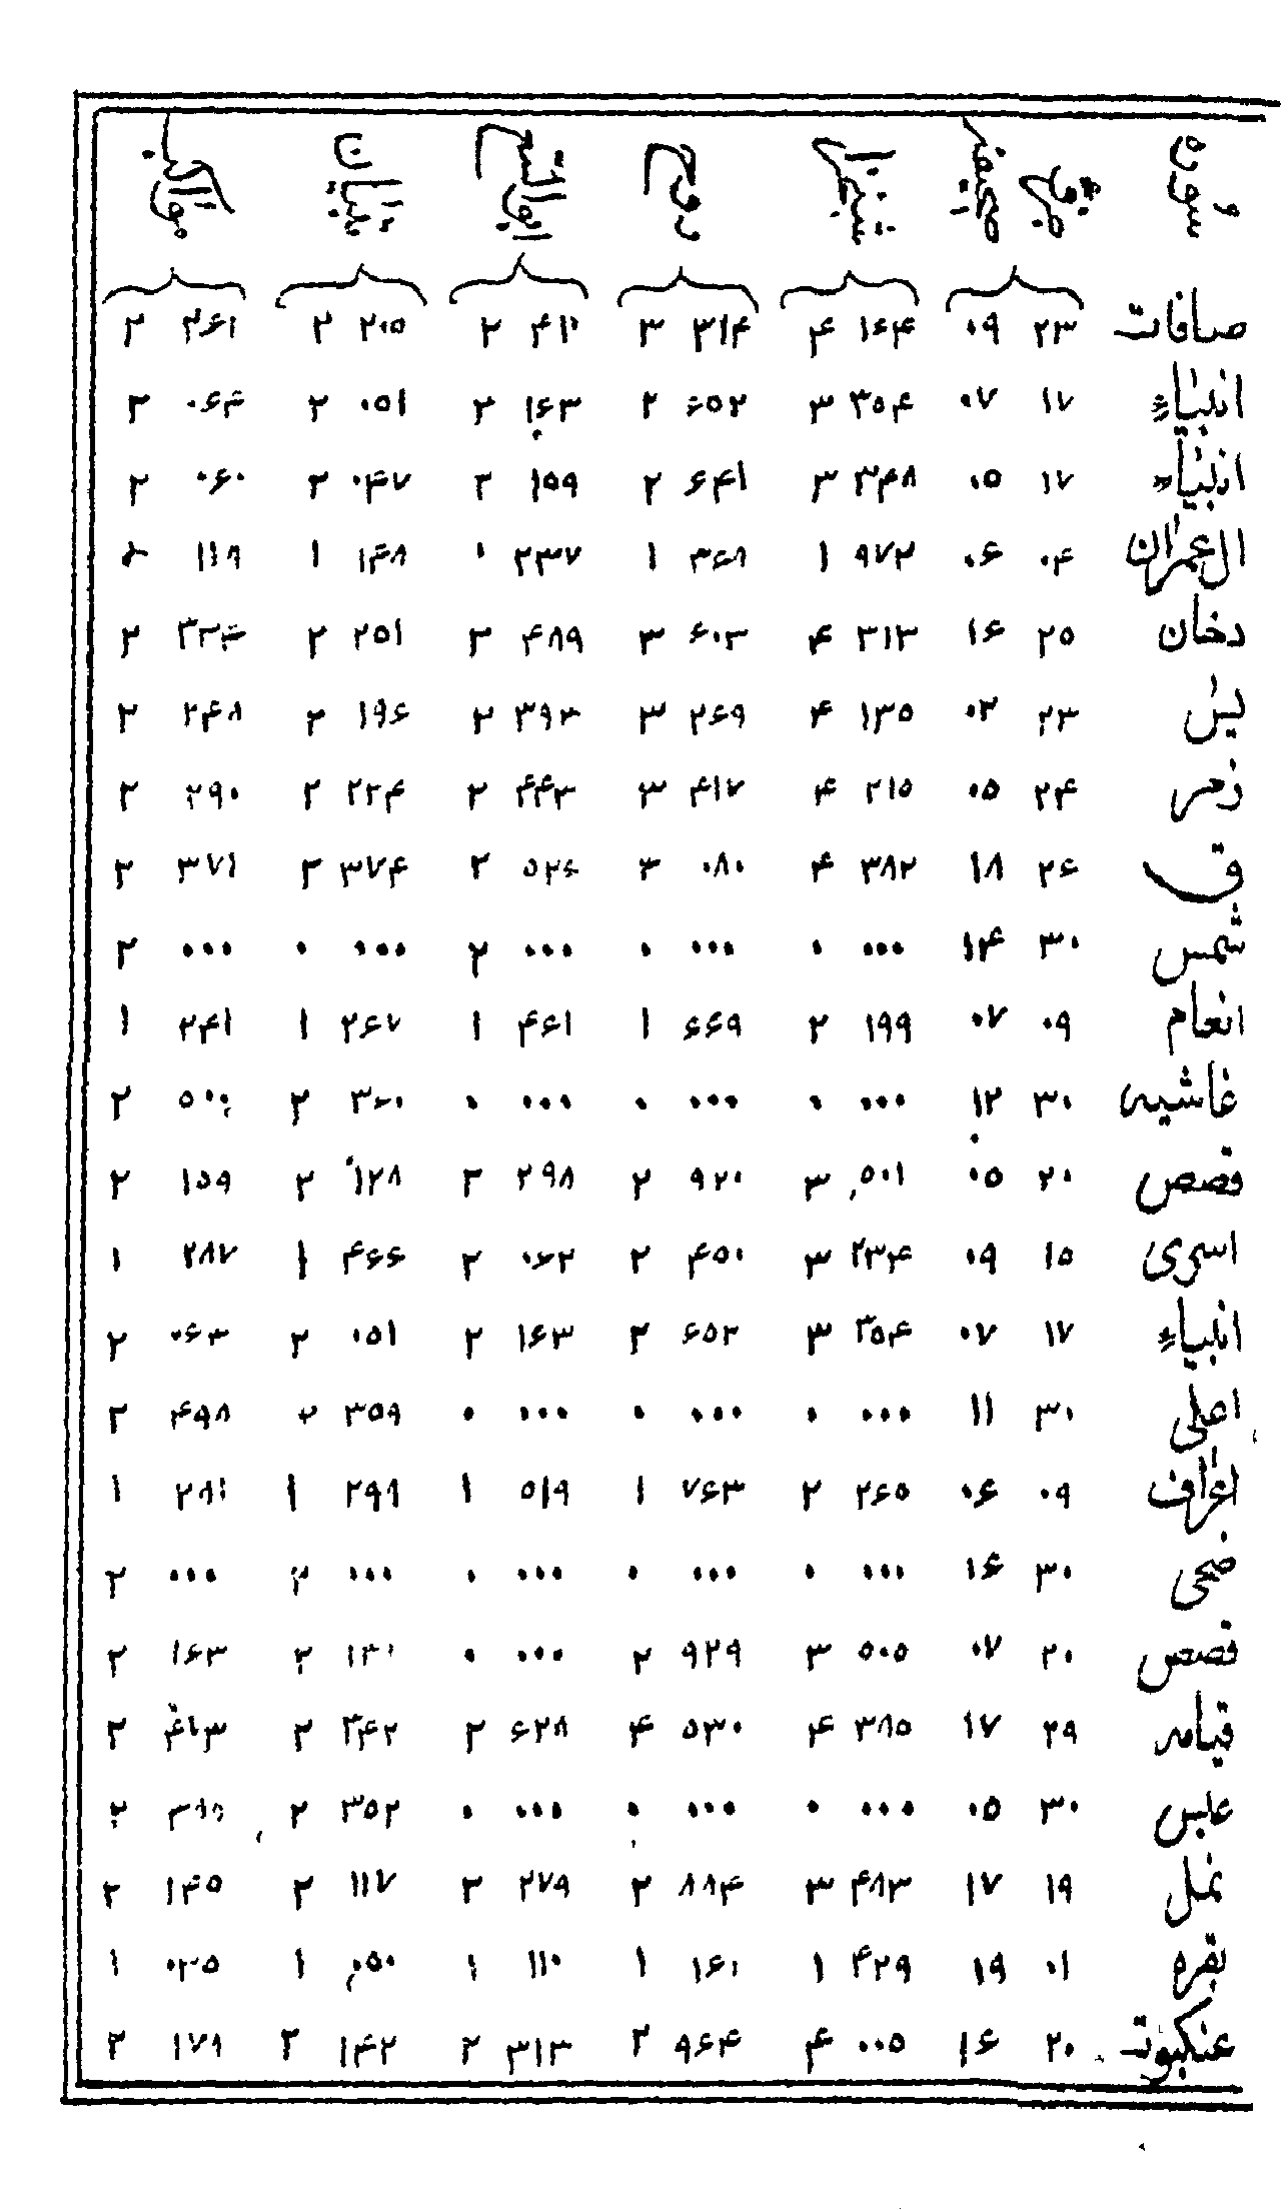 سوره صفحه تبیان
صافات ۲۳ ۰۹ ۱۶۴ ۴ ۳۱۴ ۳ ۲ ۲۰۵ ۲ ۲۶۱ ۲
انبیاء ۱۷ ۰۷ ۳۵۴ ۳ ۶۵۲ ۲ ۱۶۳ ۲ ۰۵۱ ۲ ۰۶۴ ۲
انبیاء ۱۷ ۰۵ ۳۴۸ ۳ ۶۴۱ ۲ ۱۵۹ ۲ ۰۴۷ ۲ ۰۶۰ ۲
ال عمران ۰۴ ۰۶ ۹۷۲ ۱ ۳۶۸ ۱ ۲۳۷ ۱۴۸ ۱
دخان ۲۵ ۱۶ ۳۱۳ ۴ ۶۰۳ ۳ ۴۸۹ ۲ ۲۵۱ ۲ ۳۳۴ ۲
یس ۲۳ ۰۲ ۱۳۵ ۴ ۲۶۹ ۳ ۳۹۳ ۲ ۱۹۶ ۲ ۲۴۸ ۲
زمر ۲۴ ۰۵ ۲۱۵ ۴ ۴۱۷ ۳ ۴۴۳ ۲ ۲۲۴ ۲ ۲۹۰ ۲
ق ۲۶ ۱۸ ۳۸۲ ۴ ۰۸۰ ۳ ۵۲۶ ۲ ۳۷۴ ۲ ۳۷۱ ۲
شمس ۳۰ ۱۴ ۰۰۰ ۰ ۰۰۰ ۰ ۰۰۰ ۲ ۰۰۰ ۰ ۰۰۰ ۲
انعام ۰۹ ۰۷ ۱۹۹ ۲ ۶۶۹ ۱ ۴۶۱ ۱ ۲۶۷ ۱ ۲۴۱ ۱
غاشیه ۳۰ ۱۲ ۰۰۰ ۰ ۰۰۰ ۰ ۰۰۰ ۰ ۳۶۰ ۲ ۵۰۰ ۲
قصص ۲۰ ۰۵ ۵۰۱ ۳ ۹۲۰ ۲ ۲۹۸ ۲ ۱۲۸ ۲ ۱۵۹ ۲
اسری ۱۵ ۰۹ ۲۳۴ ۳ ۴۵۰ ۲ ۰۶۲ ۲ ۴۶۶ ۱ ۲۸۷ ۱
انبیاء ۱۷ ۰۷ ۳۵۴ ۳ ۶۵۲ ۲ ۱۶۳ ۲ ۰۵۱ ۲ ۰۶۳ ۲
اعلی ۳۰ ۱۱ ۰۰۰ ۰ ۰۰۰ ۰ ۰۰۰ ۰ ۳۵۹ ۲ ۴۹۸ ۲
اعراف ۰۹ ۰۶ ۲۶۵ ۲ ۷۶۳ ۱ ۵۱۹ ۱ ۲۹۹ ۱ ۲۸۱ ۱
ضحی ۳۰ ۱۶ ۰۰۰ ۰ ۰۰۰ ۰ ۰۰۰ ۰ ۰۰۰ ۲ ۰۰۰ ۲
قصص ۲۰ ۰۷ ۵۰۵ ۳ ۹۲۹ ۲ ۰۰۰ ۰ ۱۳۱ ۲ ۱۶۳ ۲
قیامه ۲۹ ۱۷ ۳۸۵ ۴ ۵۳۰ ۴ ۶۲۸ ۲ ۳۴۲ ۲ ۲
عبس ۳۰ ۰۵ ۰۰۰ ۰ ۰۰۰ ۰ ۰۰۰ ۰ ۳۵۲ ۲ ۲
نمل ۱۹ ۱۷ ۴۸۳ ۳ ۸۸۴ ۲ ۲۷۹ ۲ ۱۱۷ ۲ ۱۴۵ ۲
بقره ۰۱ ۱۹ ۴۲۹ ۱ ۱۶۱ ۱ ۱۱۰ ۱ ۰۵۰ ۱ ۰۳۵ ۱
عنکبوت ۲۰ ۱۶ ۰۰۵ ۴ ۹۶۴ ۲ ۳۱۳ ۲ ۱۴۲ ۲ ۱۷۸ ۲